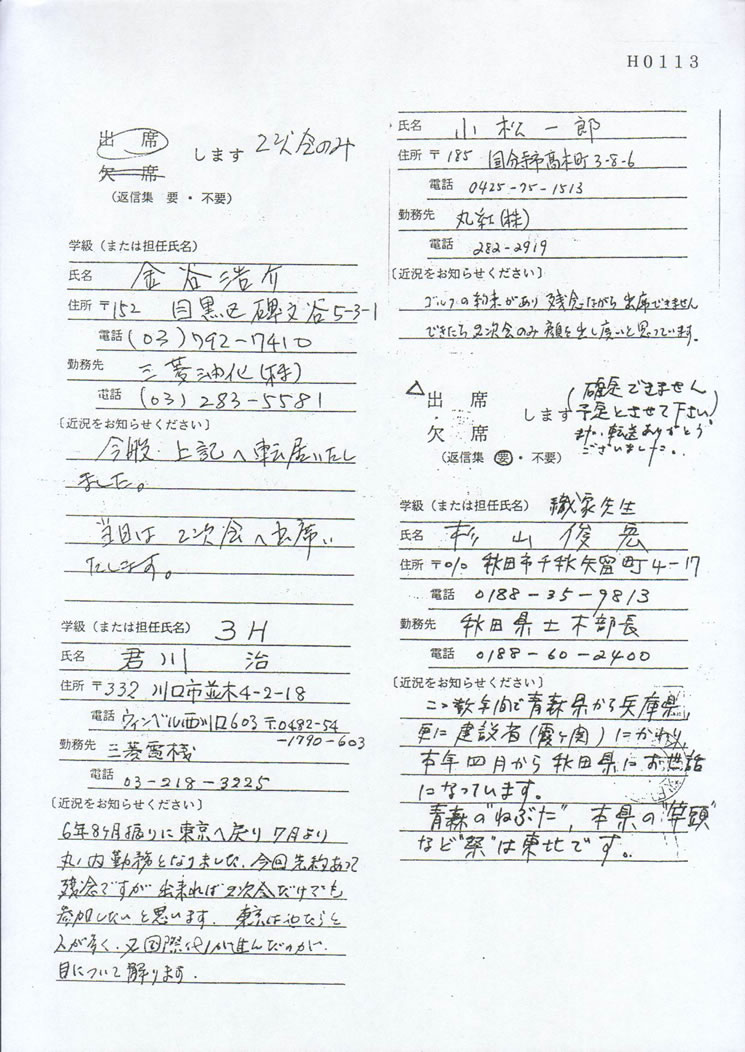 H0113
出席 します 2次会のみ
欠席
(返信集 要・不要)
学級(または担任氏名)
氏名 金谷浩介
住所 〒152 目黒区碑文谷5-3-1
電話 (03)792-7410
勤務先 三菱油化(株)
電話 (03)283-5581
〔近況をお知らせください〕
今般、上記へ転居いたし
ました。
当日は2次会へ出席い
たします。
学級(または担任氏名) 3H
氏名 君川 治
住所 〒332 川口市並木4-2-18
電話 ウィンベル西川口603 T.0482-54
-1790-603
勤務先 三菱電機
電話 03-218-3225
〔近況をお知らせください〕
6年8ヶ月振りに東京へ戻り7月より
丸ノ内勤務となりました。今回先約あって
残念ですが出来れば2次会だけでも
参加したいと思います。東京は
人が多く、又国際化が進んだのが
目について解ります.
氏名 小松一郎
住所 〒185 国分寺市高木町3-8-6
電話 0425-75-1513
勤務先 丸紅(株)
電話 282-2919
〔近況をお知らせください〕
ゴルフの約束があり残念ながら出席できません
できたら2次会のみ顔を出し度いと思っています.
△出席 します (確定できません
・ 予定とさせて下さい)
欠席 また、転送ありがとう
ございました。
(返信集 要・不要)
学級(または担任氏名) 織家先生
氏名 杉山俊宏
住所 〒010 秋田市千秋矢留町4-17
電話 0188-35-9813
勤務先 秋田県土木部長
電話 0188-60-2400
〔近況をお知らせください〕
ここ数年間で青森県から兵庫県,
更に建設省(霞ヶ関)にかわり,
本年四月から秋田県にお世話
になっています。
青森の"ねぶた", 本県の"竿頭"
など"祭"は東北です。